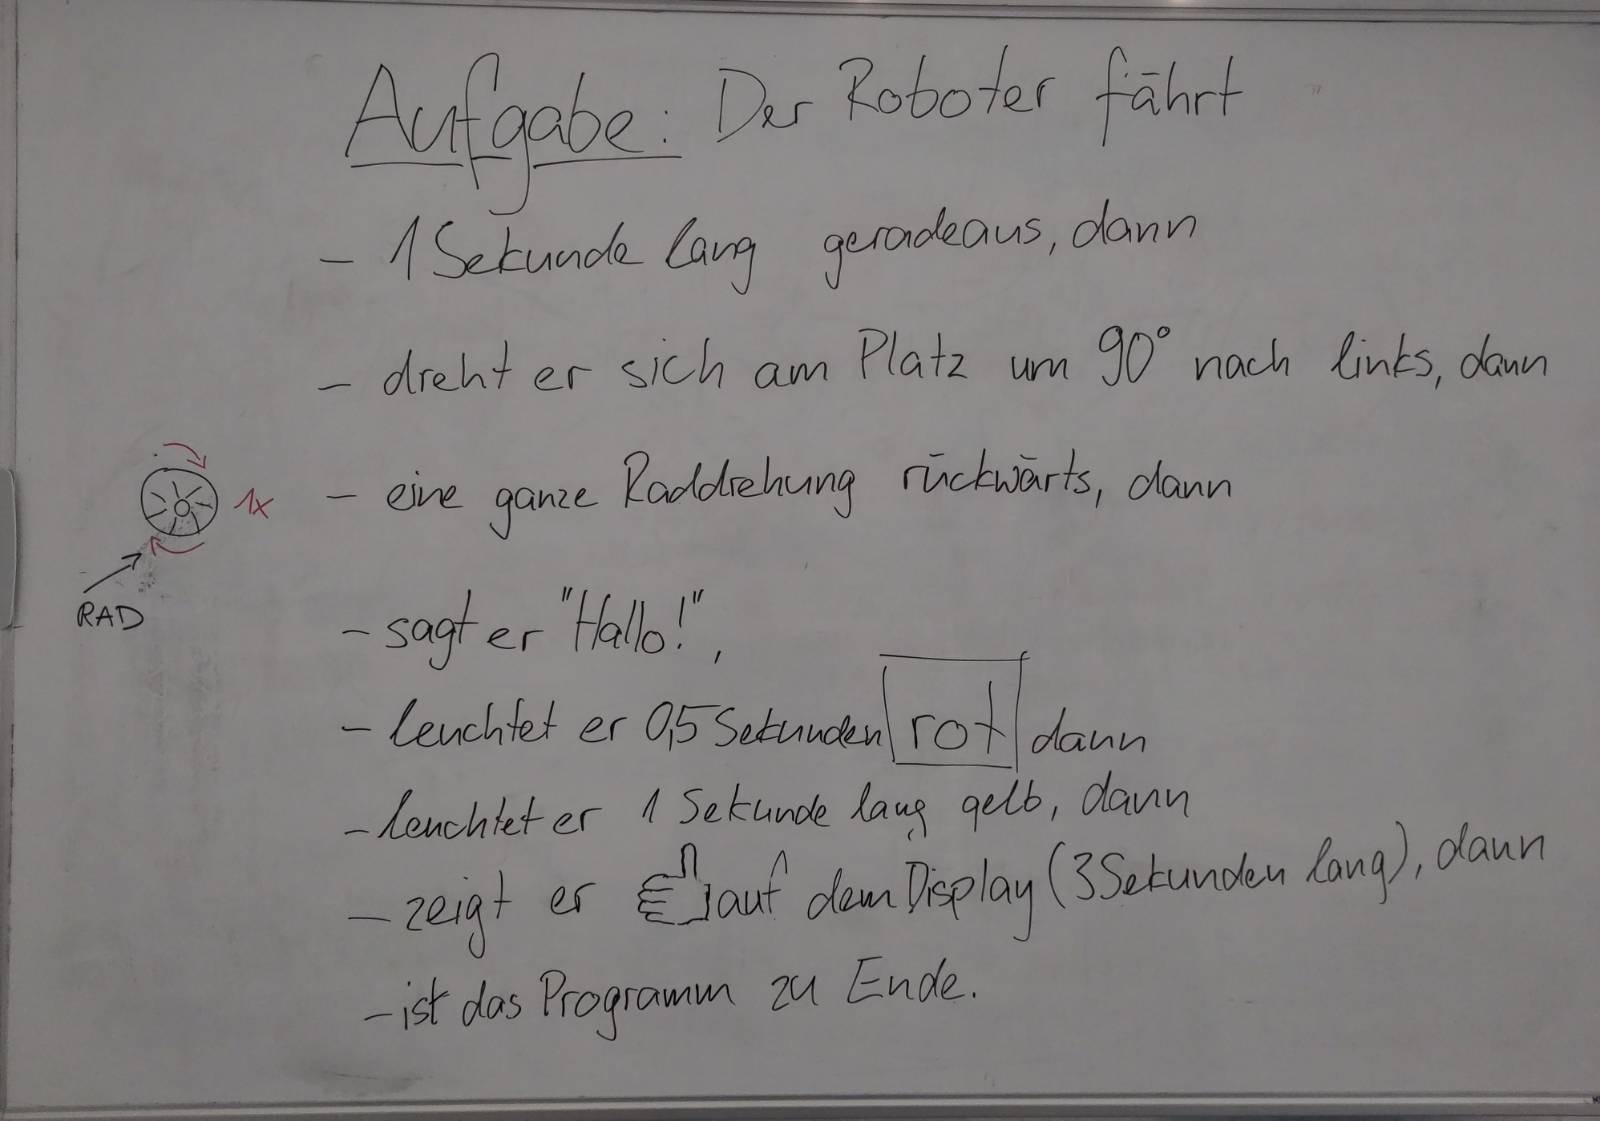 Aufgabe: Der Roboter fährt
- 1 Sekunde lang geradeaus, dann
- dreht er sich am Platz um 90° nach links, dann
- eine ganze Raddrehung rückwärts, dann
1x
RAD
- sagt er "Hallo!",
- leuchtet er 0,5 Sekunden rot dann
- leuchtet er 1 Sekunde lang gelb, dann
- zeigt er auf dem Display (3 Sekunden lang), dann
- ist das Programm zu Ende.